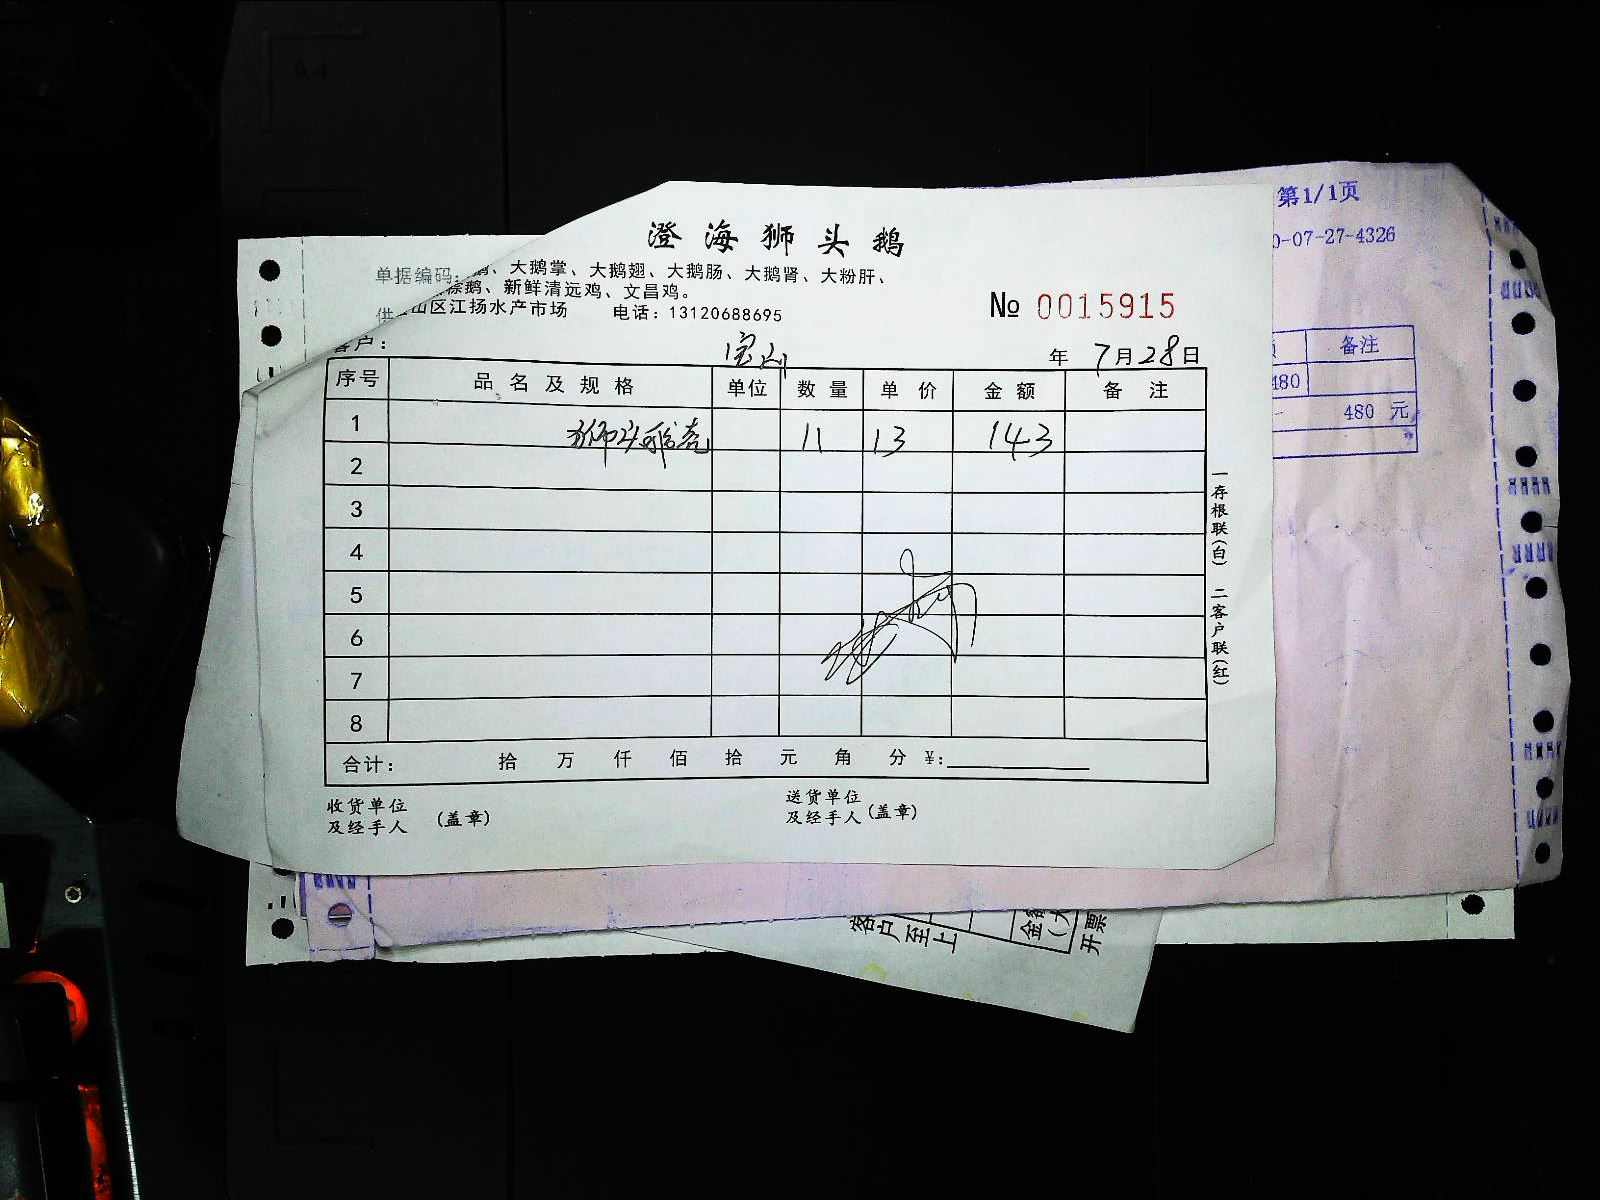 澄海狮头鹅
鹅、大鹅掌、大鹅翅、大鹅肠、大鹅肾、大粉肝、
鹅、新鲜清远鸡、文昌鸡。
山区江扬水产市场 电话：13120688695
单据编码：
供
№ 0015915
客户： 宝山 年 7月28日
序号 品名及规格 单位 数量 单价 金额 备注
1 狮头鹅壳 11 13 143
2
3
4
5
6
7
8
合计： 拾 万 仟 佰 拾 元 角 分 ￥：
收货单位
及经手人 (盖章)
送货单位
及经手人 (盖章)
一存根联(白) 二客户联(红)
第1/1页
0-07-27-4326
备注
480
480 元
客户至上
金额
(大
开票